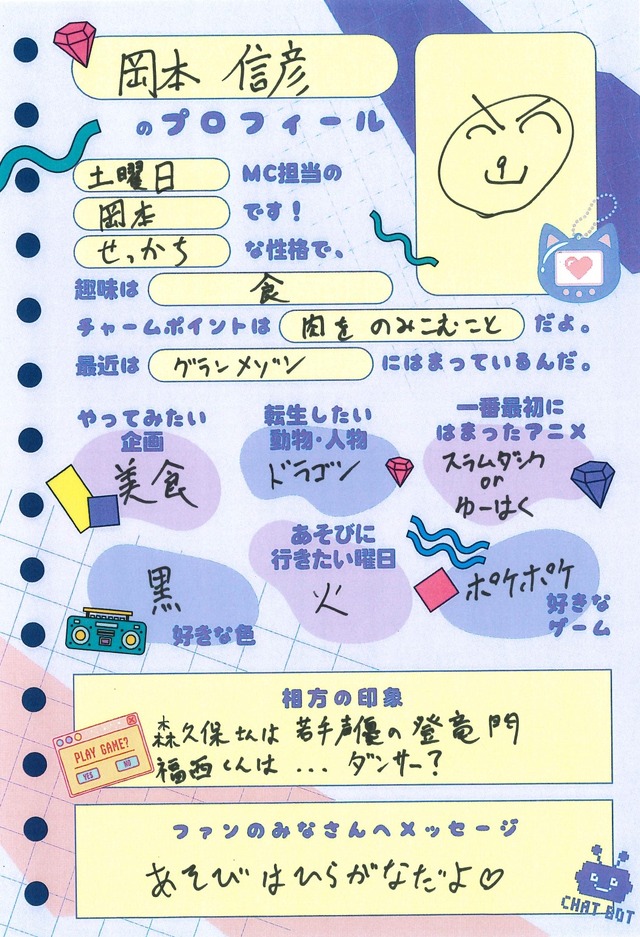 岡本 信彦
のプロフィール
土曜日 MC担当の
岡本 です！
せっかち な性格で、
趣味は 食
チャームポイントは 肉を のみこむこと だよ。
最近は グランメゾン にはまっているんだ。
やってみたい
企画
美食
転生したい
動物・人物
ドラゴン
一番最初に
はまったアニメ
スラムダンク
or
ゆーはく
黒
好きな色
あそびに
行きたい曜日
火
ポケポケ
好きな
ゲーム
相方の印象
森久保さんは 若手声優の登竜門
福西くんは ... ダンサー？
PLAY GAME?
YES NO
ファンのみなさんへメッセージ
あそびはひらがなだよ♡
CHAT BOT